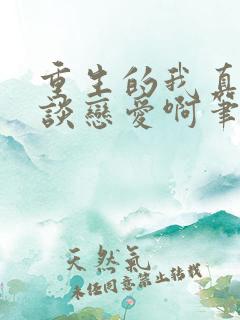 重生的我真
談戀愛啊筆
天然氣
未任同意禁止转载